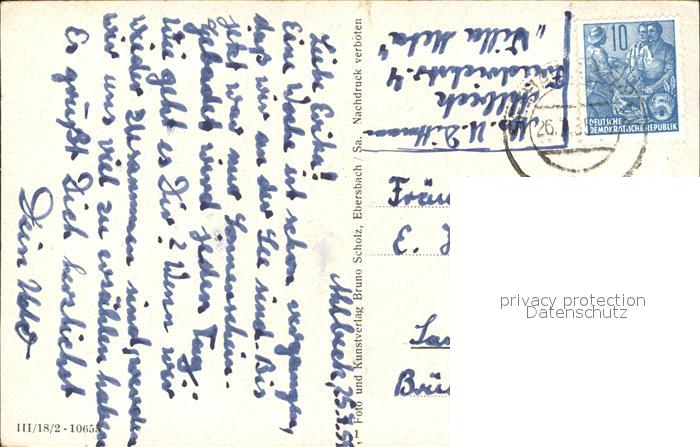 Ahlbeck, 25.7.5
Liebe Erika!
Eine Woche ist schon vergangen,
daß wir an der See sind. Bis
jetzt war nur Sonnenschein.
Gebadet wird jeden Tag.
Wie geht es Dir? Wenn wir
wieder zusammen sind, werden
wir uns viel zu erzählen haben.
Es grüßt Dich herzlichst
Dein Udo
III/18/2 - 1065
Foto und Kunstverlag Bruno Scholz, Ebersbach / Sa. Nachdruck verboten
U. Dittmann
Ahlbeck
Friedrichstr. 4
„Villa Meta"
10
5
DEUTSCHE
DEMOKRATISCHE REPUBLIK
26.7.5
Fräu
E.
Brü
privacy protection
Datenschutz